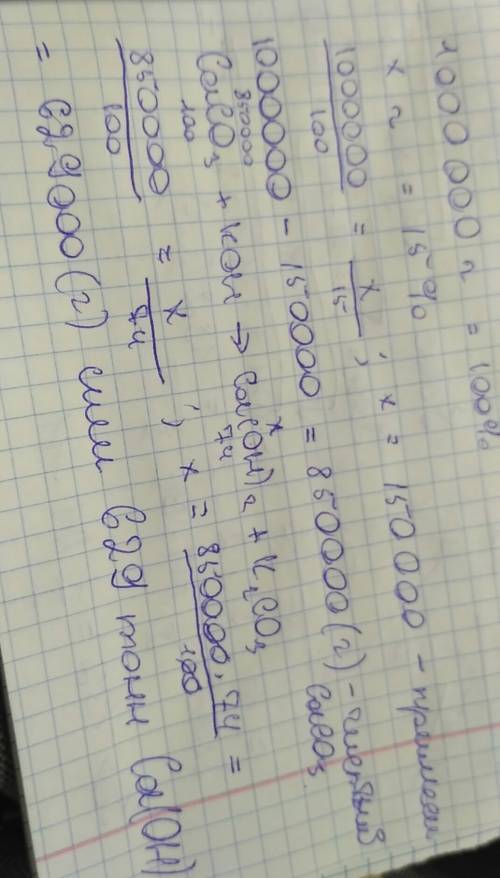 1000 000 г = 100%
x г = 15%
1000000/100 = x/15 ; x = 150 000 - примеси
1000000 - 150000 = 850000 (г) - чистый CaCO3
850000 x
CaCO3 + KOH → Ca(OH)2 + K2CO3
100 74
850000/100 = x/74 ; x = 850000 · 74/100 =
= 629000 (г) или 629 тонн Ca(OH)